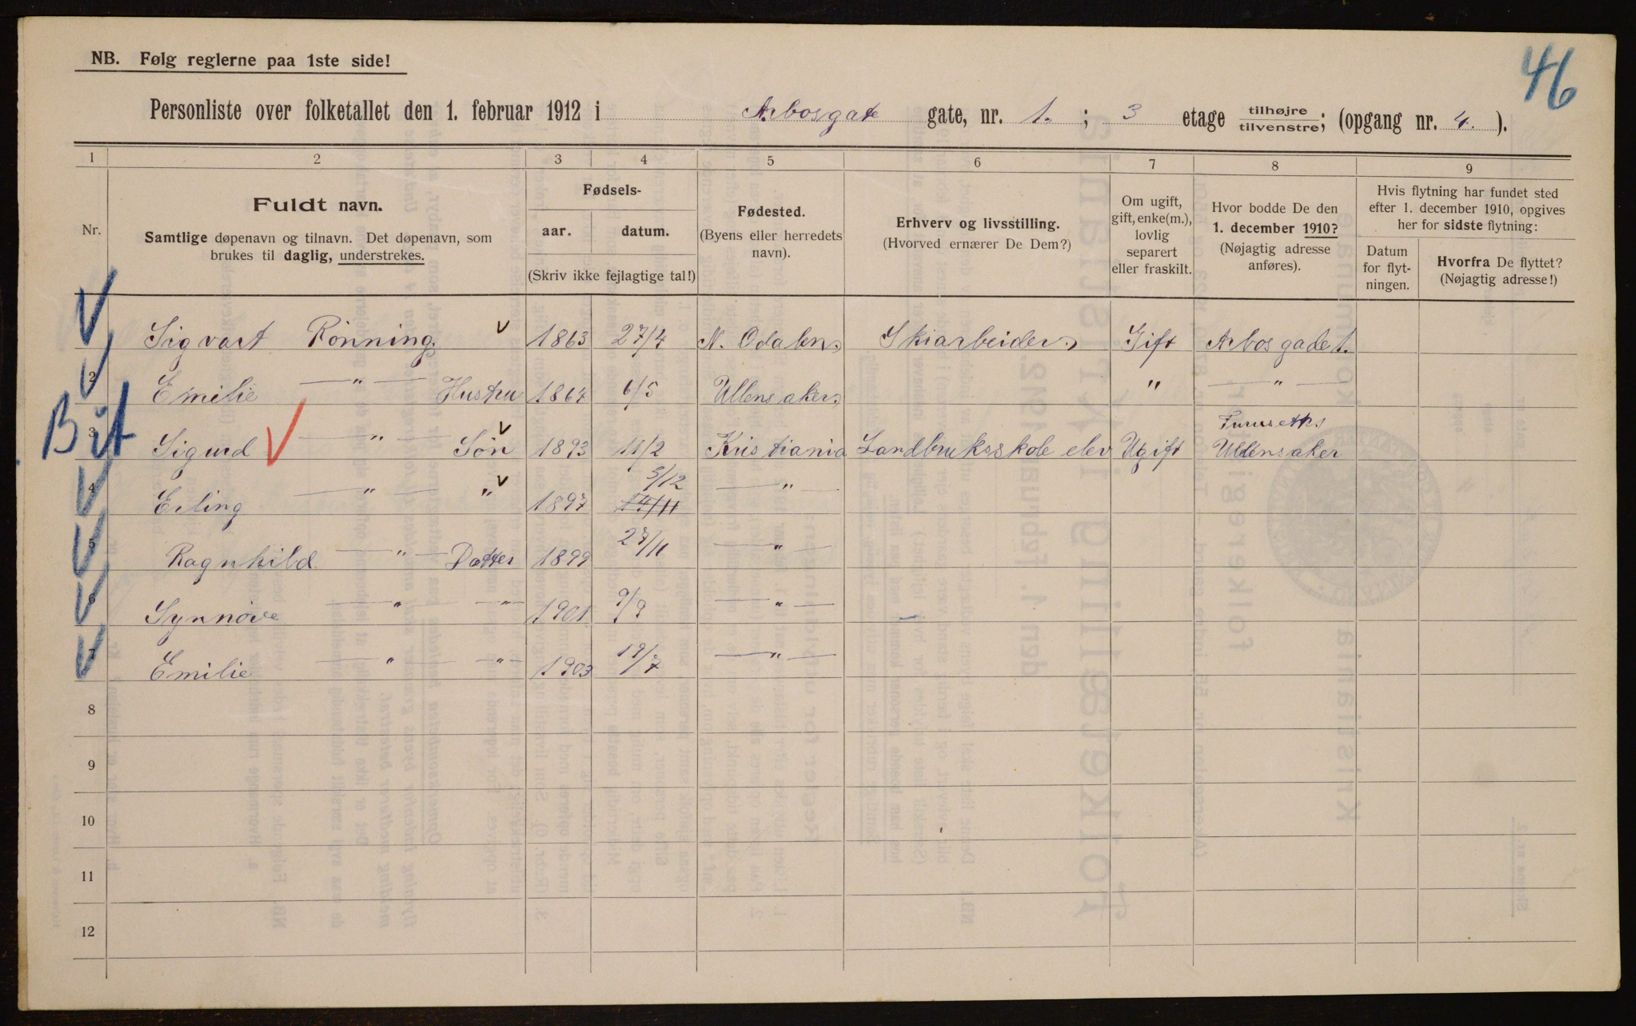 NB. Følg reglerne paa 1ste side!
46
Personliste over folketallet den 1. februar 1912 i Arbosgate gate, nr. 1. ; 3 etage tilhøjre tilvenstre; (opgang nr. 4. ).
1 2 3 4 5 6 7 8 9
Nr.
Fuldt navn.
Samtlige døpenavn og tilnavn. Det døpenavn, som
brukes til daglig, understrekes.
Fødsels-
aar. datum.
(Skriv ikke fejlagtige tal!)
Fødested.
(Byens eller herredets
navn).
Erhverv og livsstilling.
(Hvorved ernærer De Dem?)
Om ugift,
gift, enke(m.),
lovlig
separert
eller fraskilt.
Hvor bodde De den
1. december 1910?
(Nøjagtig adresse
anføres).
Hvis flytning har fundet sted
efter 1. december 1910, opgives
her for sidste flytning:
Datum
for flyt-
ningen.
Hvorfra De flyttet?
(Nøjagtig adresse!)
Sigvart Rønning. 1863 27/4 N. Odalen Skiarbeider Gift Arbosgade 1.
2 Emilie — " — Hustru 1864 6/5 Ullensaker " — " —
Furuseths
Büt 3 Sigurd — " — Søn 1893 11/2 Kristiania Landbruksskole elev Ugift Ullensaker
5/12
4 Erling — " — " 1897 14/11 — " —
5 Ragnhild — " — Datter 1899 27/11 — " —
6 Synnøve — " — — " — 1901 9/9 — " — —
7 Emilie — " — — " — 1903 19/7 — " —
8
9
10
11
12